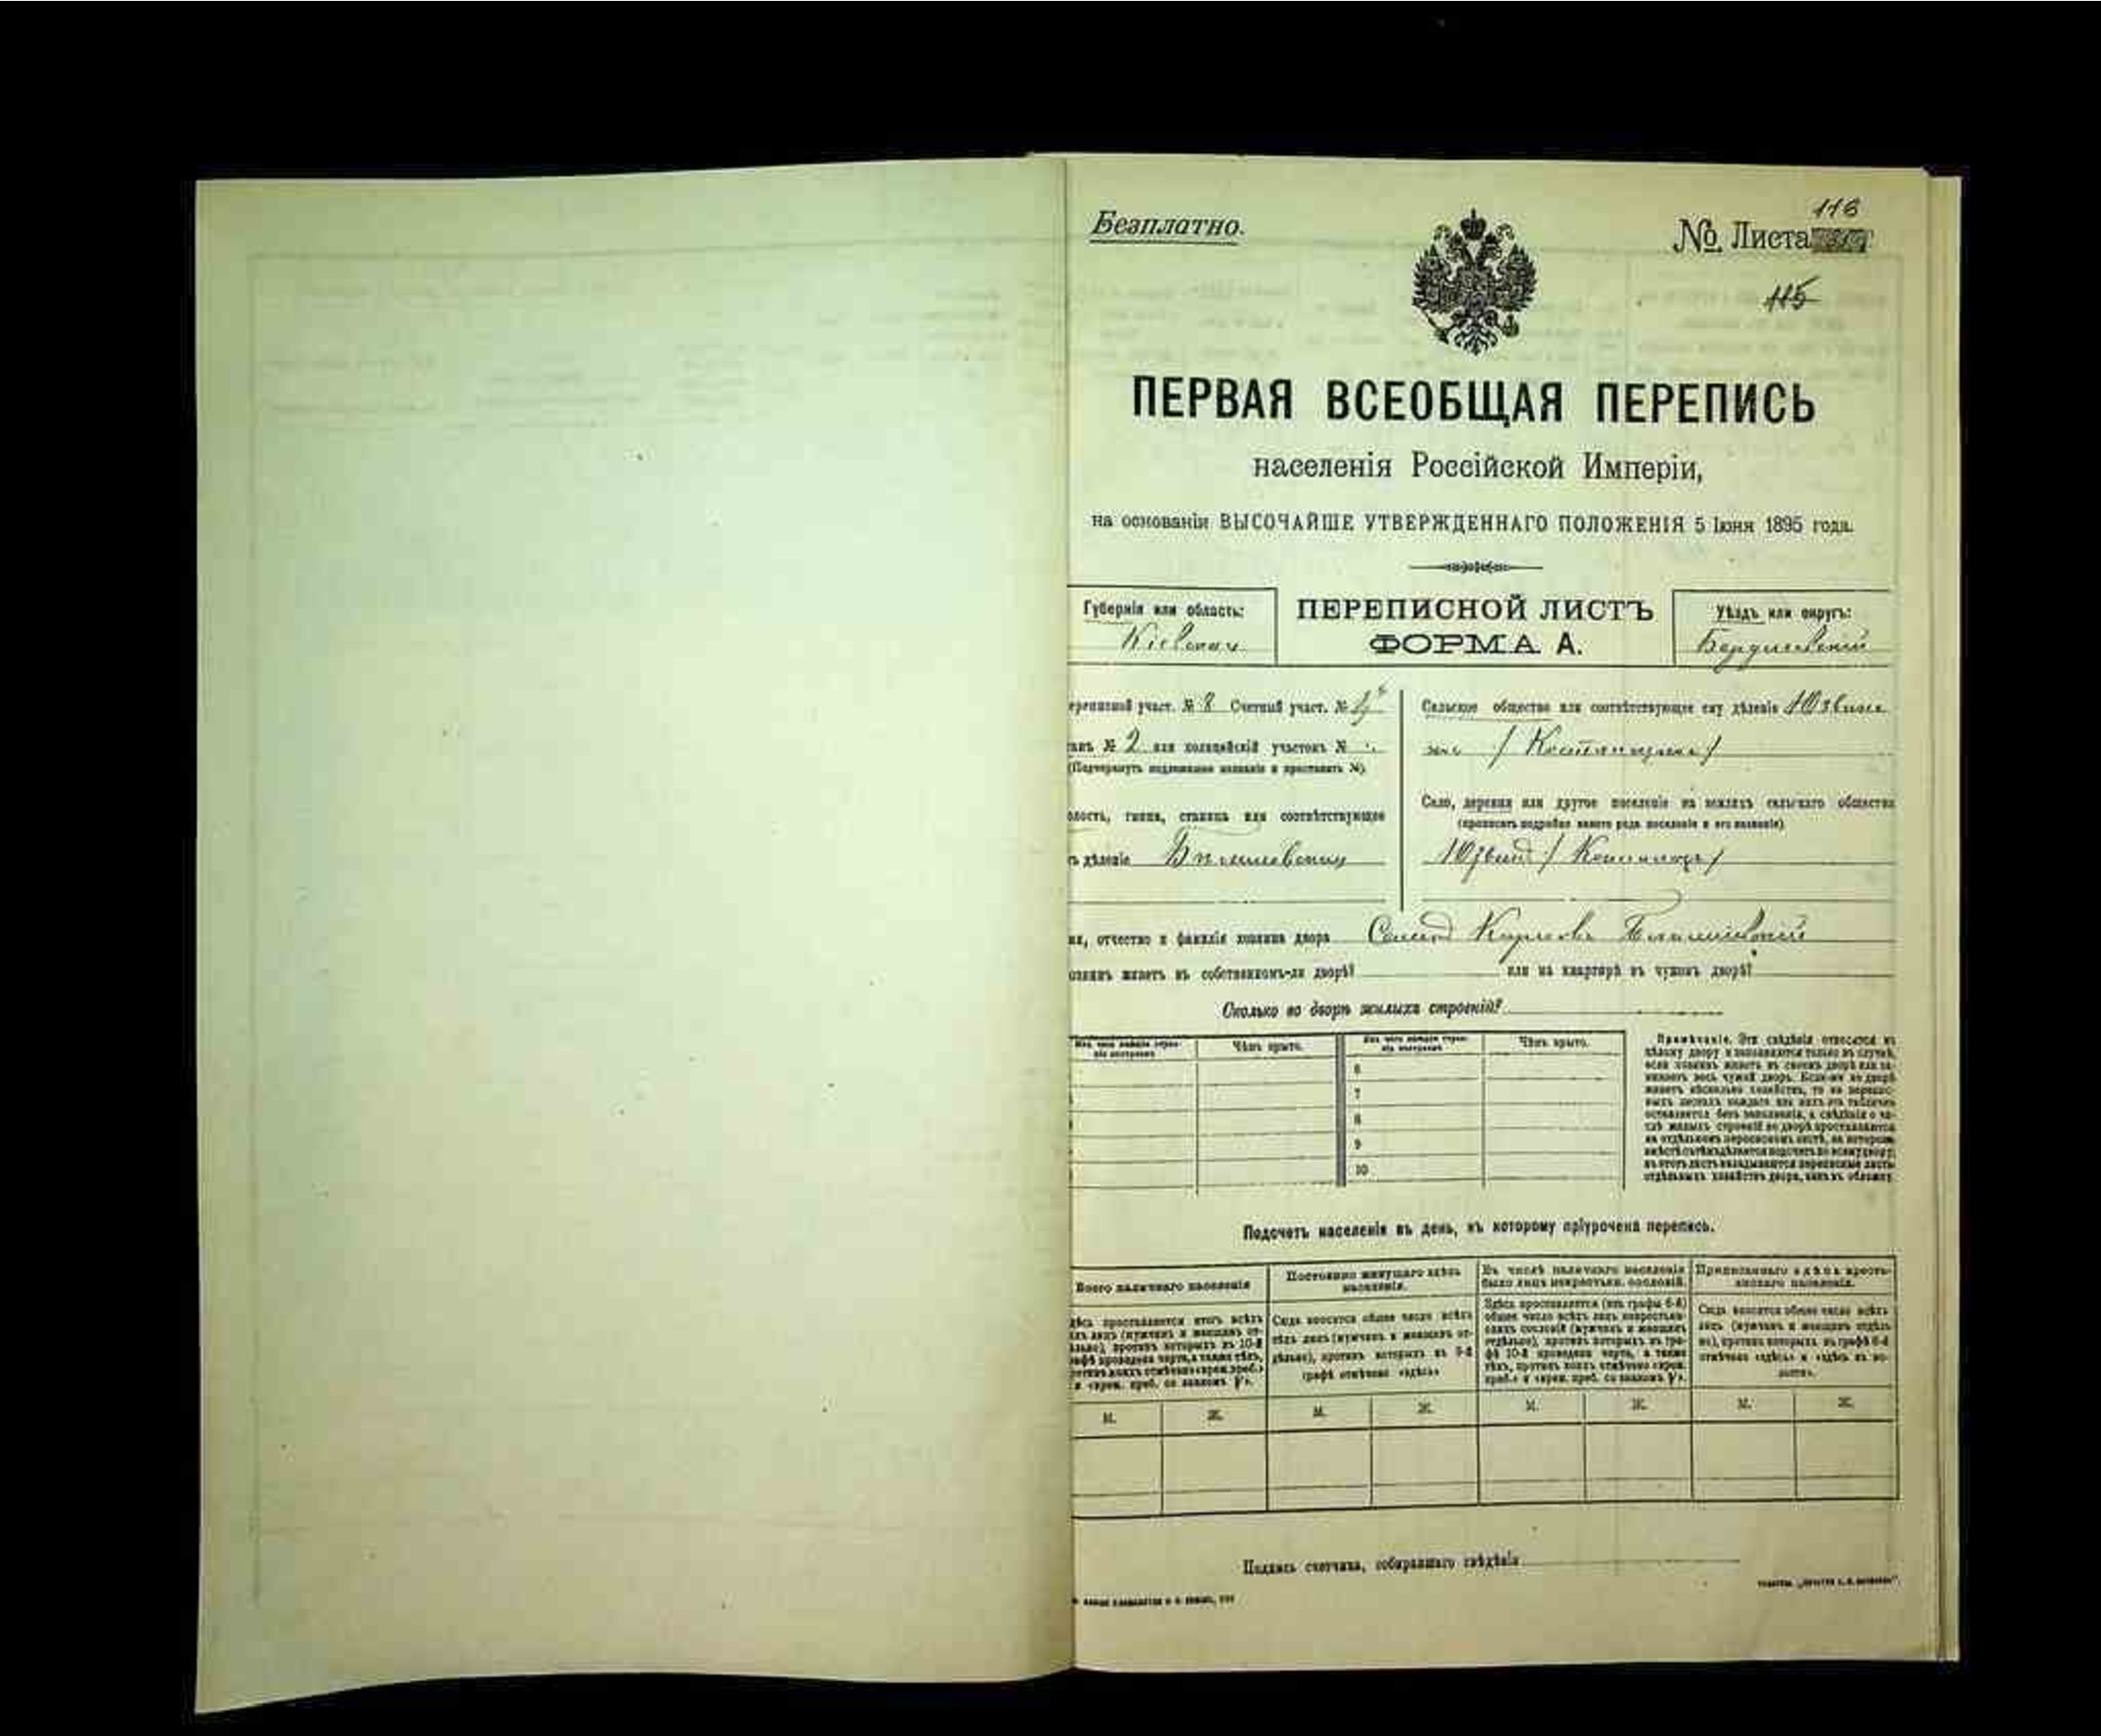 Безплатно.
116
№ Листа
115
ПЕРВАЯ ВСЕОБЩАЯ ПЕРЕПИСЬ
населенія Россійской Имперіи,
на основаніи ВЫСОЧАЙШЕ УТВЕРЖДЕННАГО ПОЛОЖЕНІЯ 5 Іюня 1895 года.
Губернія или область:
Кіевская
ПЕРЕПИСНОЙ ЛИСТЪ
ФОРМА А.
Уѣздъ или округъ:
Бердичевскій
ереписной участ. № 8 Счетный участ. №
анъ № 2 или полицейскій участокъ №
(Подчеркнуть подлежащее названіе и проставить №)
олость, гмина, станица или соотвѣтствующее
ъ дѣленіе
Сельское общество или соотвѣтствующее ему дѣленіе
Село, деревня или другое поселеніе на земляхъ сельскаго общества
(прописать подробно какого рода поселеніе и его названіе)
мя, отчество и фамилія хозяина двора
озяинъ живетъ въ собственномъ-ли дворѣ? или на квартирѣ въ чужомъ дворѣ?
Сколько во дворѣ жилыхъ строеній?
Чѣмъ крыто.
Чѣмъ крыто.
6
7
8
9
10
Примѣчаніе. Эти свѣдѣнія относятся къ
цѣлому двору и заполняются только въ случаѣ,
если хозяинъ живетъ въ своемъ дворѣ или за-
нимаетъ весь чужой дворъ. Если-же во дворѣ
живетъ нѣсколько хозяйствъ, то на перепис-
ныхъ листахъ каждаго изъ нихъ эта табличка
оставляется безъ заполненія, а свѣдѣнія о чи-
слѣ жилыхъ строеній во дворѣ проставляются
на отдѣльномъ переписномъ листѣ, на которомъ
вмѣстѣ съ тѣмъ дѣлается подсчетъ по всему двору;
въ этотъ листъ вкладываются переписные листы
отдѣльныхъ хозяйствъ двора, какъ въ обложку.
Подсчетъ населенія въ день, къ которому пріурочена перепись.
Всего наличнаго населенія
Постоянно живущаго здѣсь
населенія.
Въ числѣ наличнаго населенія
было лицъ некрестьян. сословій.
Приписаннаго здѣсь кресть-
янскаго населенія.
дѣсь проставляется итогъ всѣхъ
ѣхъ лицъ (мужчинъ и женщинъ от-
дѣльно), противъ которыхъ въ 10-й
рафѣ проведена черта, а также тѣхъ,
ротивъ коихъ отмѣчено «врем. преб.»
и «врем. преб. со знакомъ
Сюда вносится общее число всѣхъ
тѣхъ лицъ (мужчинъ и женщинъ от-
дѣльно), противъ которыхъ въ 9-й
графѣ отмѣчено «здѣсь»
Здѣсь проставляется (изъ графы 6-й)
общее число всѣхъ лицъ некрестьян-
скихъ сословій (мужчинъ и женщинъ
отдѣльно), противъ которыхъ въ гра-
фѣ 10-й проведена черта, а также
тѣхъ, противъ коихъ отмѣчено «врем.
преб.» и «врем. преб. со знакомъ
Сюда вносится общее число всѣхъ
лицъ (мужчинъ и женщинъ отдѣль-
но), противъ которыхъ въ графѣ 8-й
отмѣчено «здѣсь» и «здѣсь въ во-
лости».
М. Ж. М. Ж. М. Ж. М. Ж.
Подпись счетчика, собиравшаго свѣдѣнія